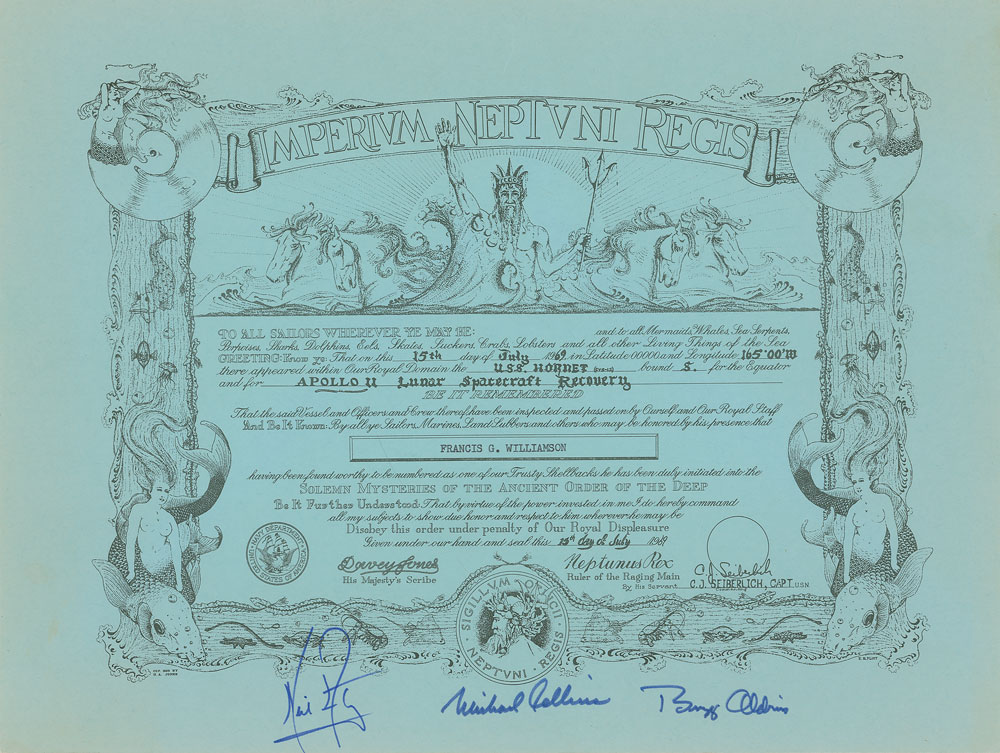 IMPERIVM NEPTVNI REGIS
TO ALL SAILORS WHEREVER YE MAY BE: and to all Mermaids, Whales, Sea Serpents,
Porpoises, Sharks, Dolphins, Eels, Skates, Suckers, Crabs, Lobsters and all other Living Things of the Sea
GREETING: Know ye: That on this 15th day of July 1969 in Latitude 00000 and Longitude 165°00'W
there appeared within Our Royal Domain the U.S.S. HORNET (CVS-12) bound S. for the Equator
and for APOLLO 11 Lunar Spacecraft Recovery
BE IT REMEMBERED
That the said Vessel and Officers and Crew thereof have been inspected and passed on by Ourself and Our Royal Staff
And Be It Known: By all ye Sailors, Marines, Land Lubbers and others who may be honored by his presence that
FRANCIS G. WILLIAMSON
having been found worthy to be numbered as one of our Trusty Shellbacks he has been duly initiated into the
SOLEMN MYSTERIES OF THE ANCIENT ORDER OF THE DEEP
Be It Further Understood: That by virtue of the power invested in me I do hereby command
all my subjects to show due honor and respect to him wherever he may be
Disobey this order under penalty of Our Royal Displeasure
Given under our hand and seal this 15th day of July 1969
NAVY DEPARTMENT
UNITED STATES OF AMERICA
Davey Jones
His Majesty's Scribe
Neptunus Rex
Ruler of the Raging Main
By His Servant
C.J. Seiberlich
C.J. SEIBERLICH, CAPT. U.S.N
SIGILLVM OFFICII
NEPTVNI REGIS
Neil
Michael Collins
Buzz Aldrin